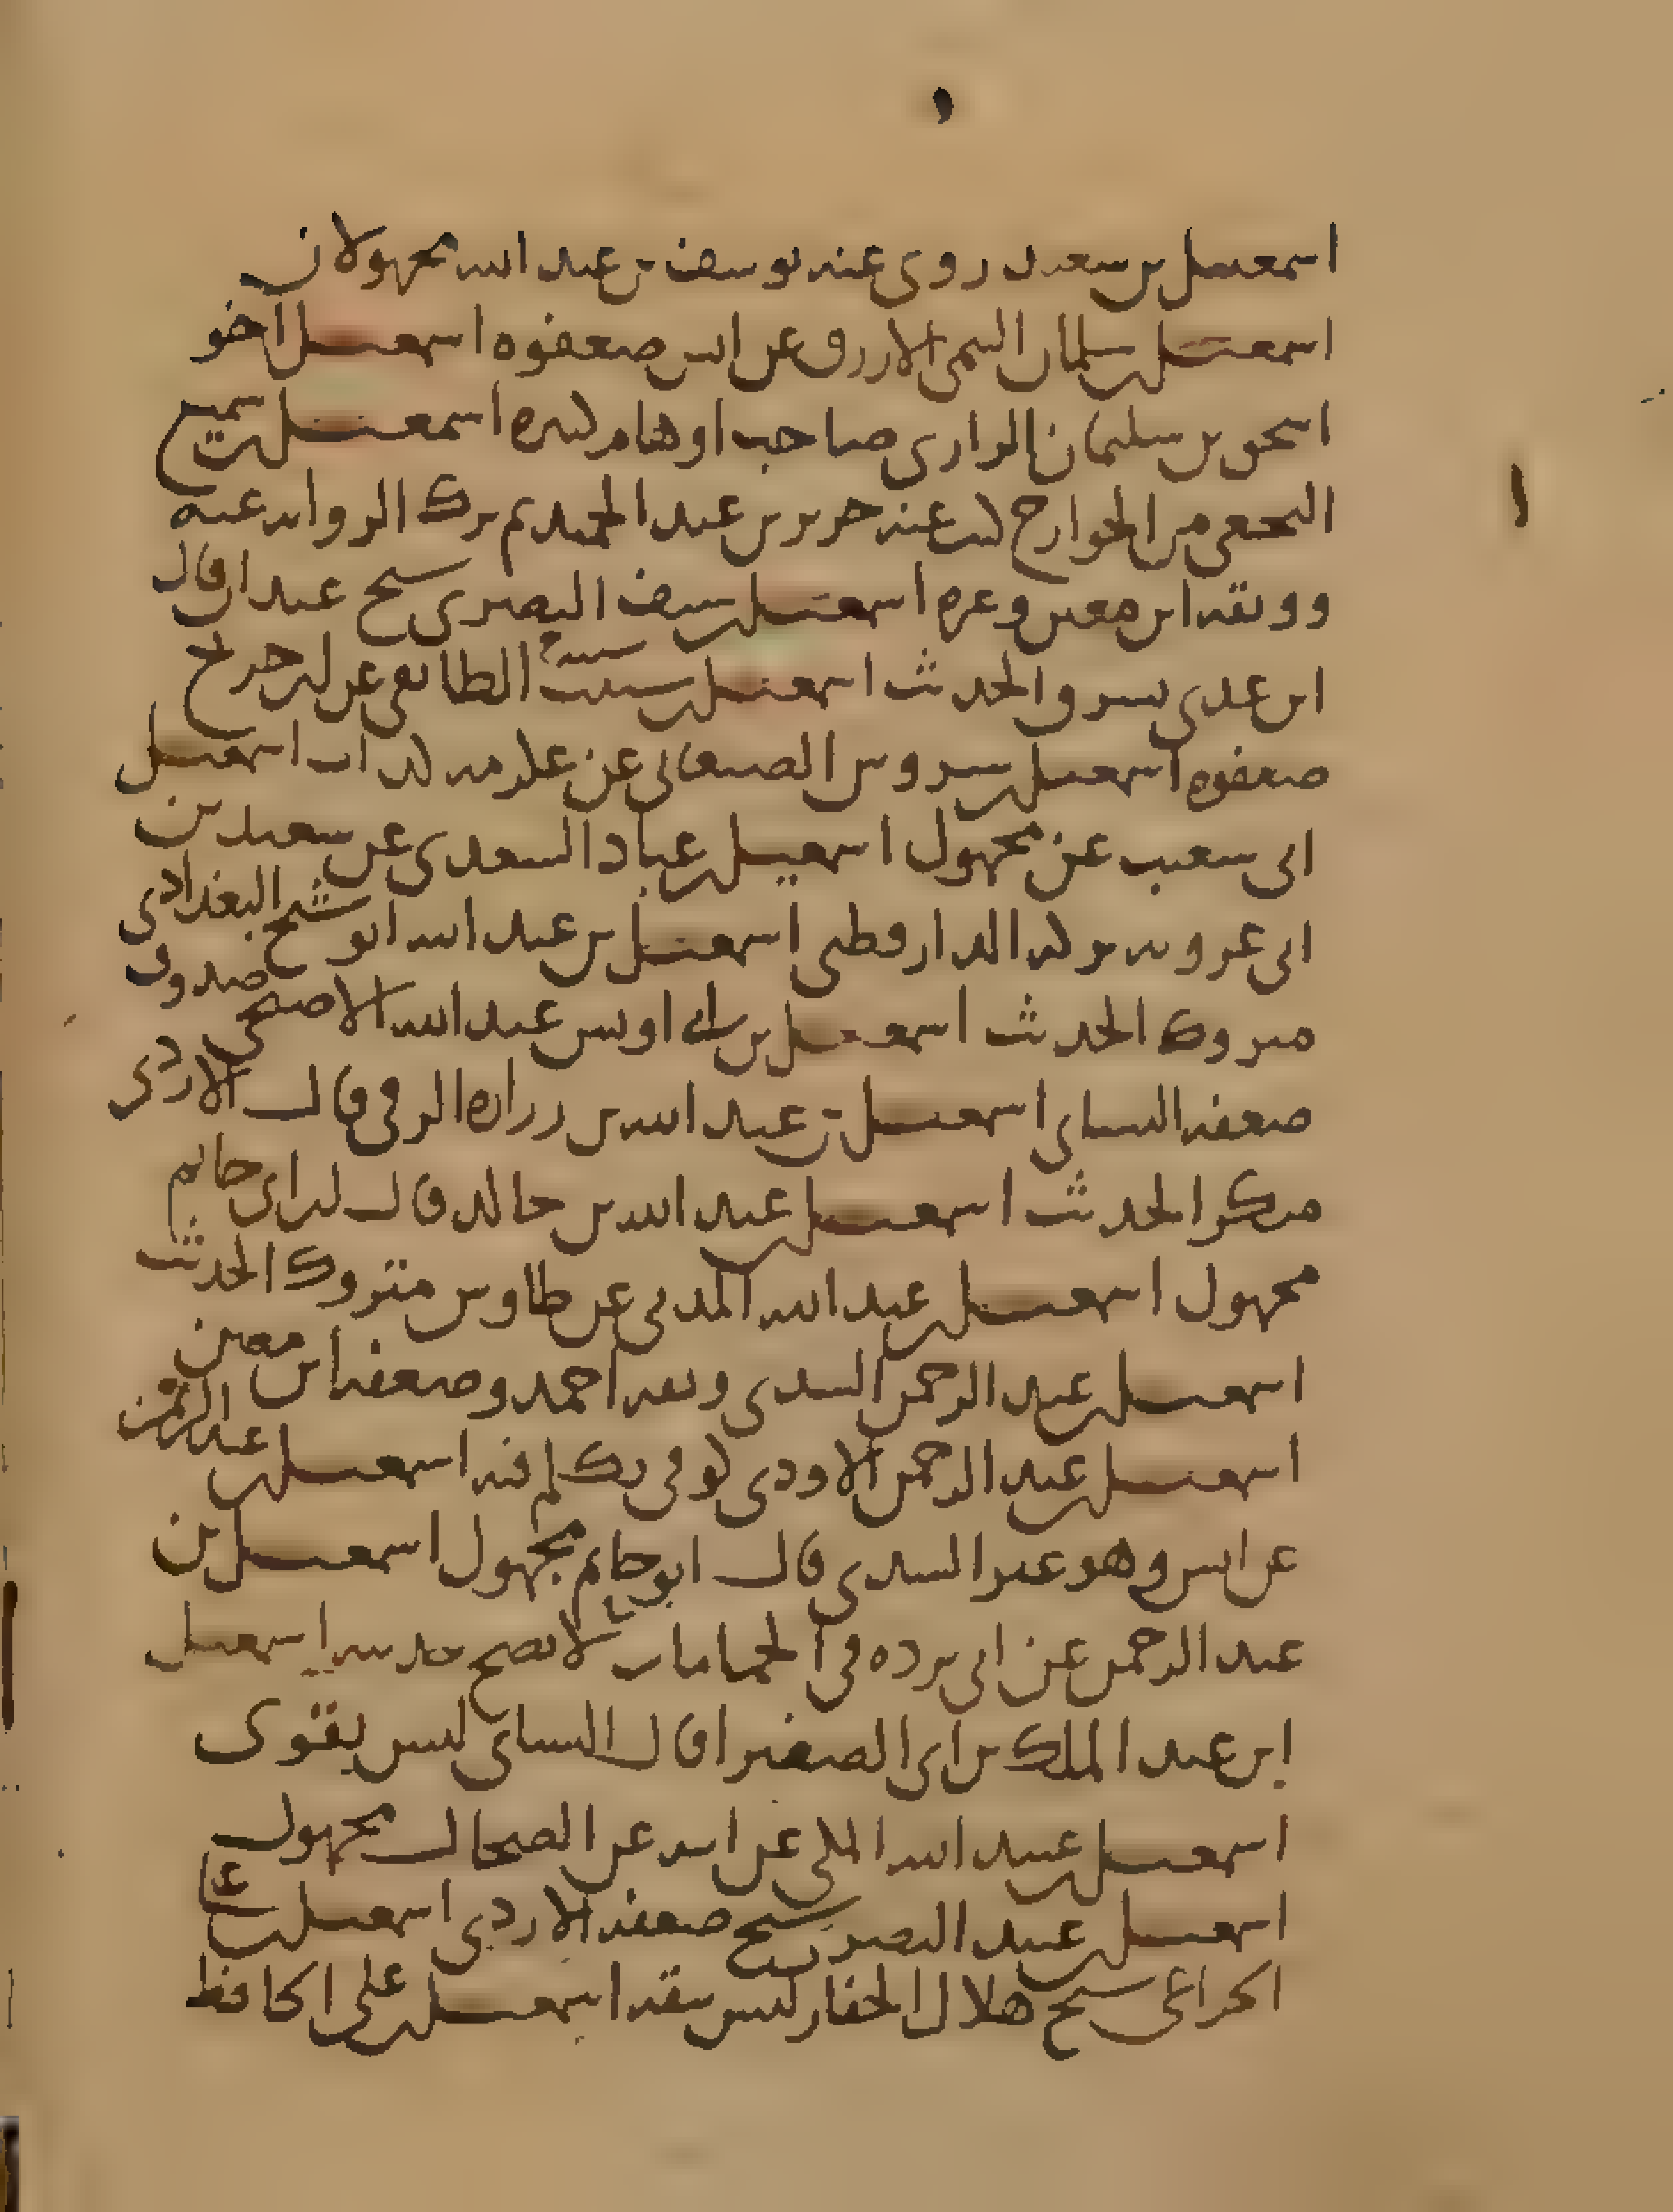 اسمعيل بن سعيد روى عنه يوسف بن عبد الله مجهولان
اسمعيل بن سلمان التيمي الازرق عن انس ضعفوه اسمعيل اخو
اسحق بن سليمان الرازي صاحب اوهام كثيرة اسمعيل بن سميع
الحنفي من الخوارج كتب عنه جرير بن عبد الحميد ثم ترك الرواية عنه
ووثقه ابن معين وغيره اسمعيل بن سيف البصري شيخ عبدان قال
ابن عدي يسرق الحديث اسمعيل بن شبيب الطائفي عن ابن جريج
ضعفوه اسمعيل بن شروس الصنعاني عن عكرمة كذاب اسمعيل
ابي شعيب عن مجهول اسمعيل بن عباد السعدي عن سعيد بن
ابي عروبة تركه الدارقطني اسمعيل بن عبد الله ابو شيخ البغدادي
متروك الحديث اسمعيل بن ابي اويس عبد الله الاصبحي صدوق
ضعفه النسائي اسمعيل بن عبد الله بن زرارة الرقي قال الازدي
منكر الحديث اسمعيل بن عبد الله بن خالد قال ابن ابي حاتم
مجهول اسمعيل بن عبد الله المدني عن طاوس متروك الحديث
اسمعيل بن عبد الرحمن السدي وثقه احمد وضعفه ابن معين
اسمعيل بن عبد الرحمن الاودي كوفي تكلم فيه اسمعيل بن عبد الرحمن
عن انس وهو غير السدي قال ابو حاتم مجهول اسمعيل بن
عبد الرحمن عن ابي بردة في الحمامات لا يصح حديثه اسمعيل
ابن عبد الملك بن ابي الصفيرا قال النسائي ليس بقوي
اسمعيل بن عبيد الله المكي عن ابيه عن الضحاك مجهول
اسمعيل بن عبيد البصري شيخ ضعفه الازدي اسمعيل بن علي
الخزاعي شيخ هلال الحفار ليس بثقة اسمعيل بن علي الحافظ